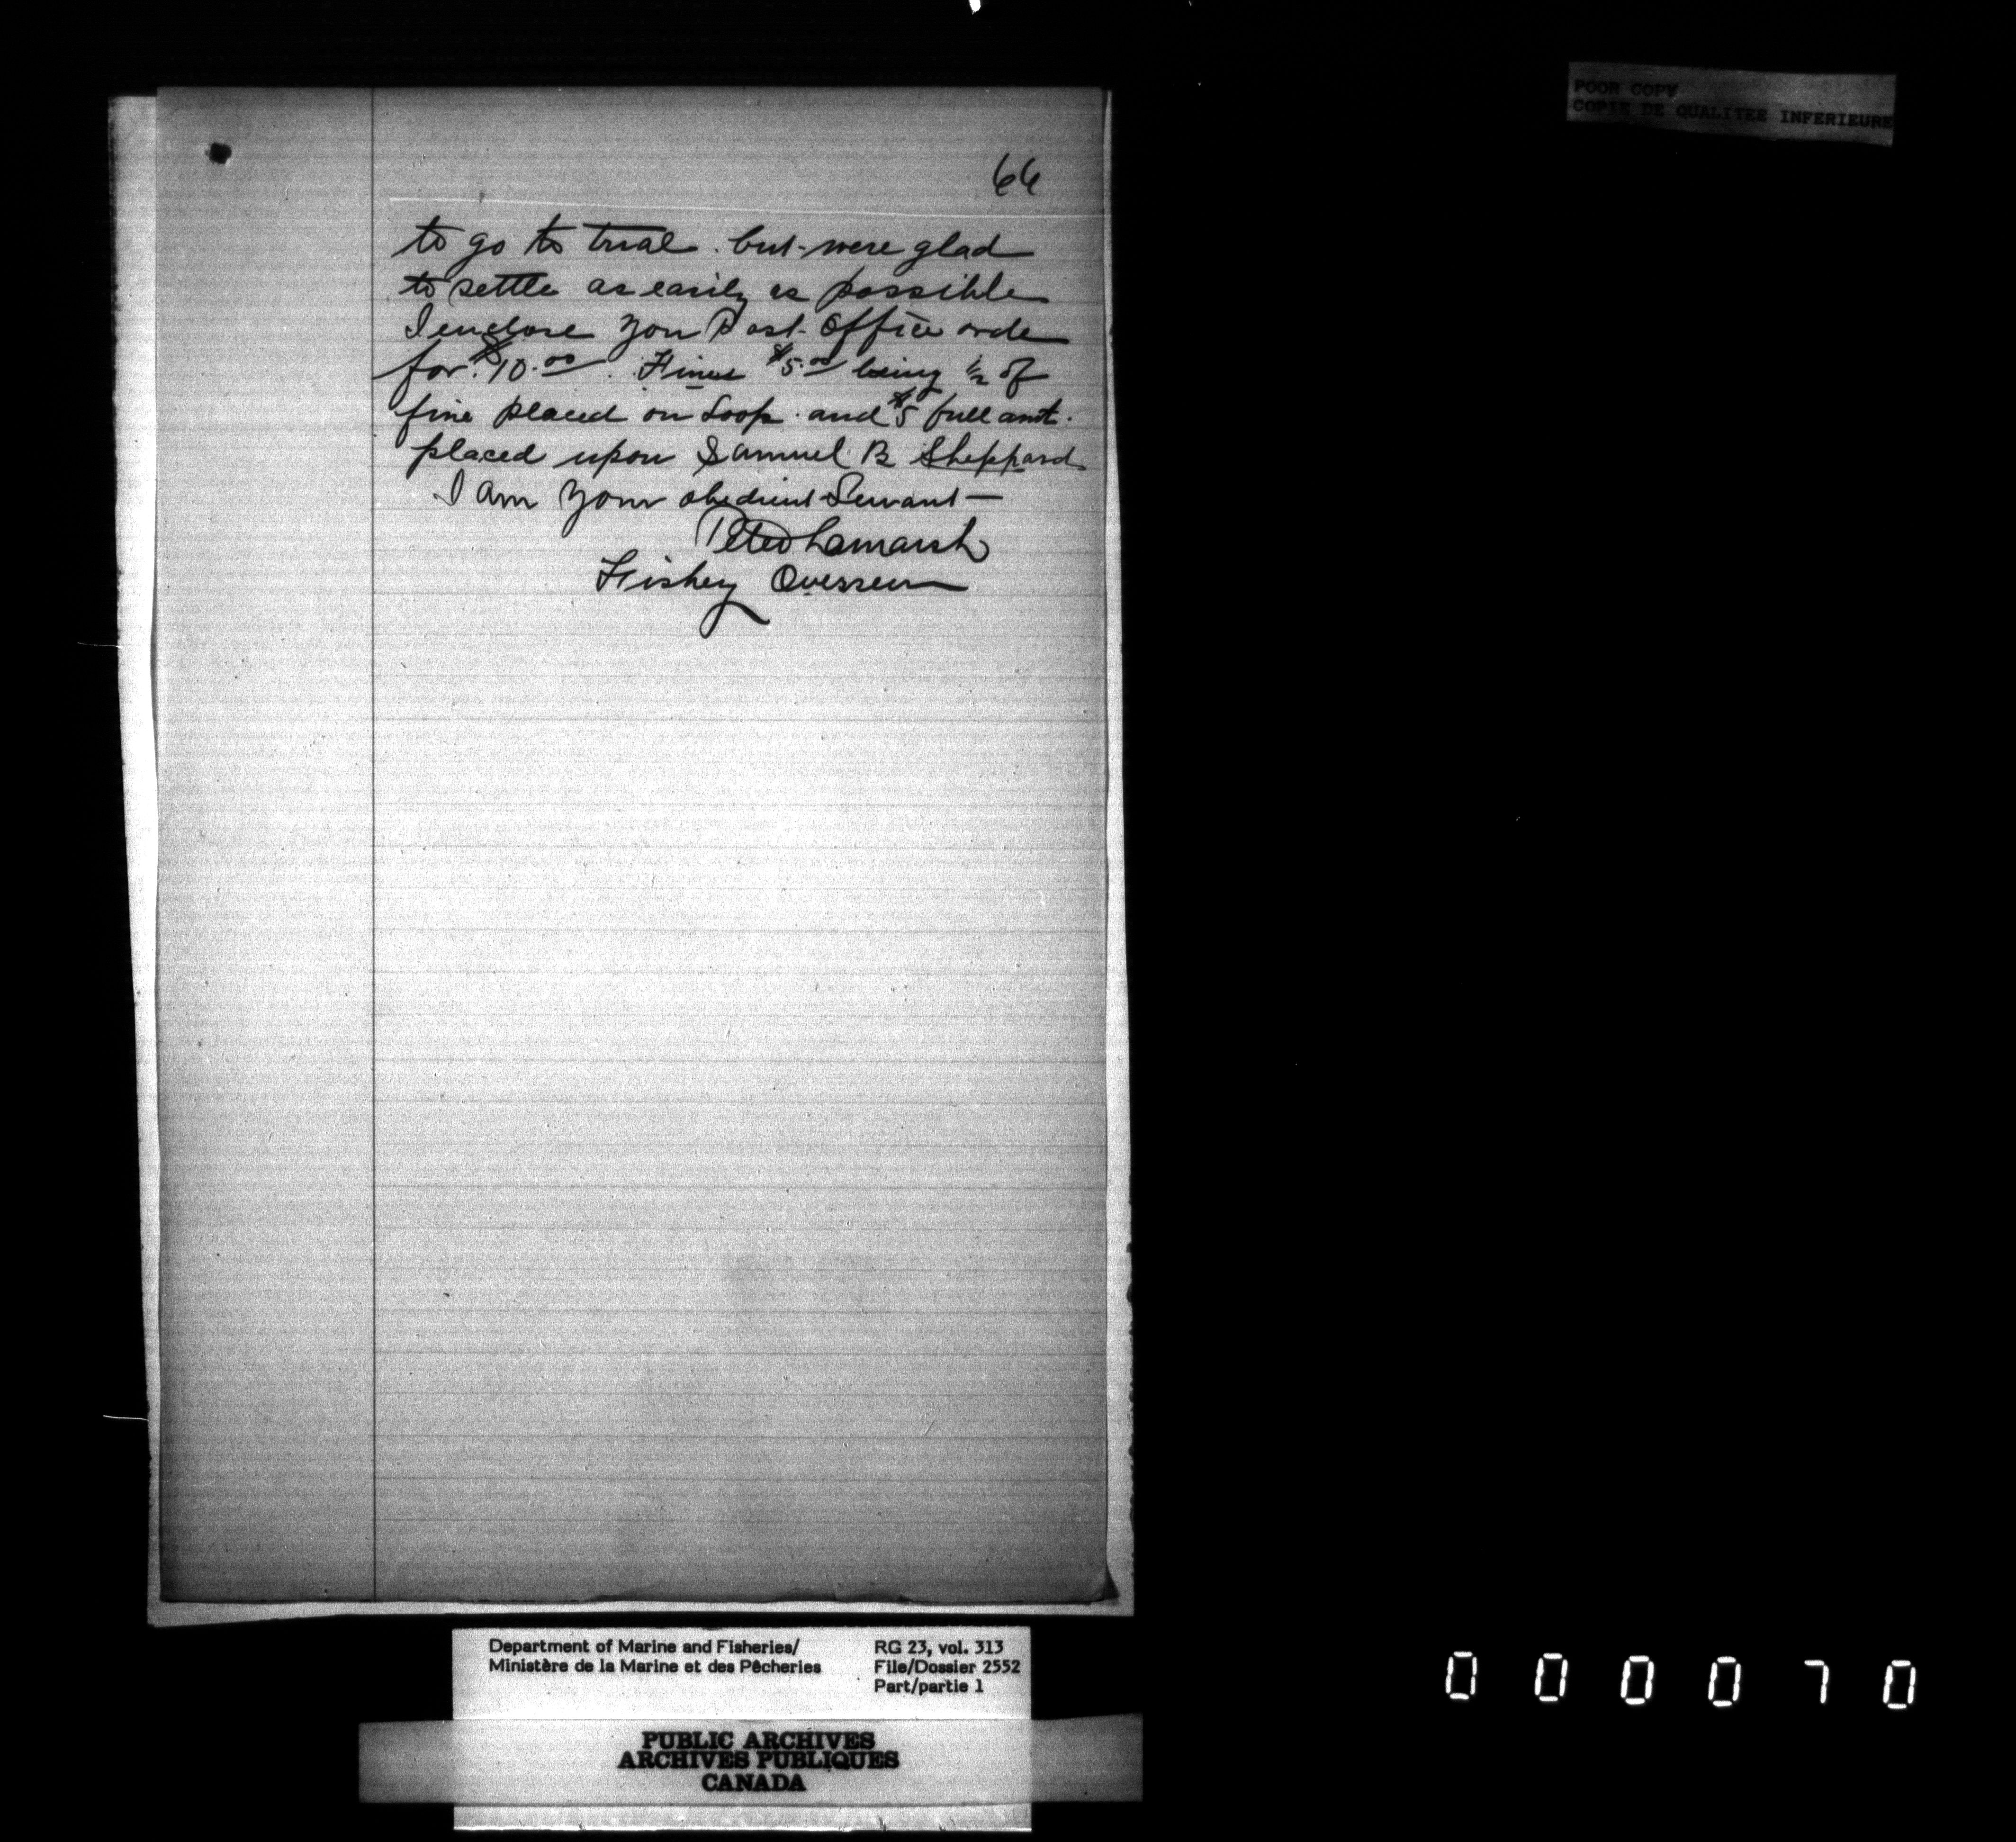 POOR COPY
COPIE DE QUALITEE INFERIEURE
66
to go to trial. but were glad
to settle as easily as possible
I enclose you Post Office orde
for $10.00. Fines $5.00 being 1/2 of
fine placed on Loop. and $5 full amt.
placed upon Samuel B Sheppard
I am your obedient Servant —
Peter Lamarsh
Fishery Overseer
Department of Marine and Fisheries/ RG 23, vol. 313
Ministère de la Marine et des Pêcheries File/Dossier 2552
Part/partie 1
PUBLIC ARCHIVES
ARCHIVES PUBLIQUES
CANADA
000070